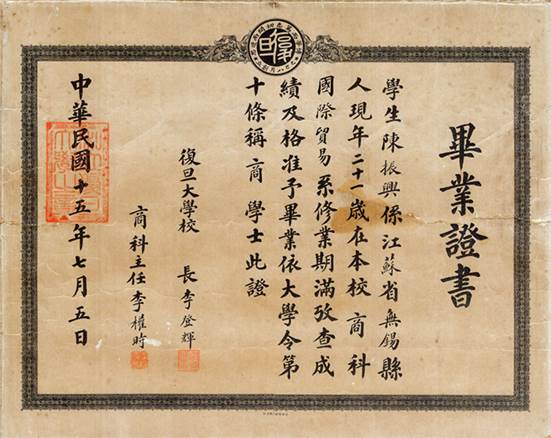 畢業證書
學生陳振興係江蘇省無錫縣
人現年二十一歲在本校商科
國際貿易系修業期滿攷查成
績及格准予畢業依大學令第
十條稱商學士此證
復旦大學校長李登輝
商科主任李權時
中華民國十五年七月五日
復旦